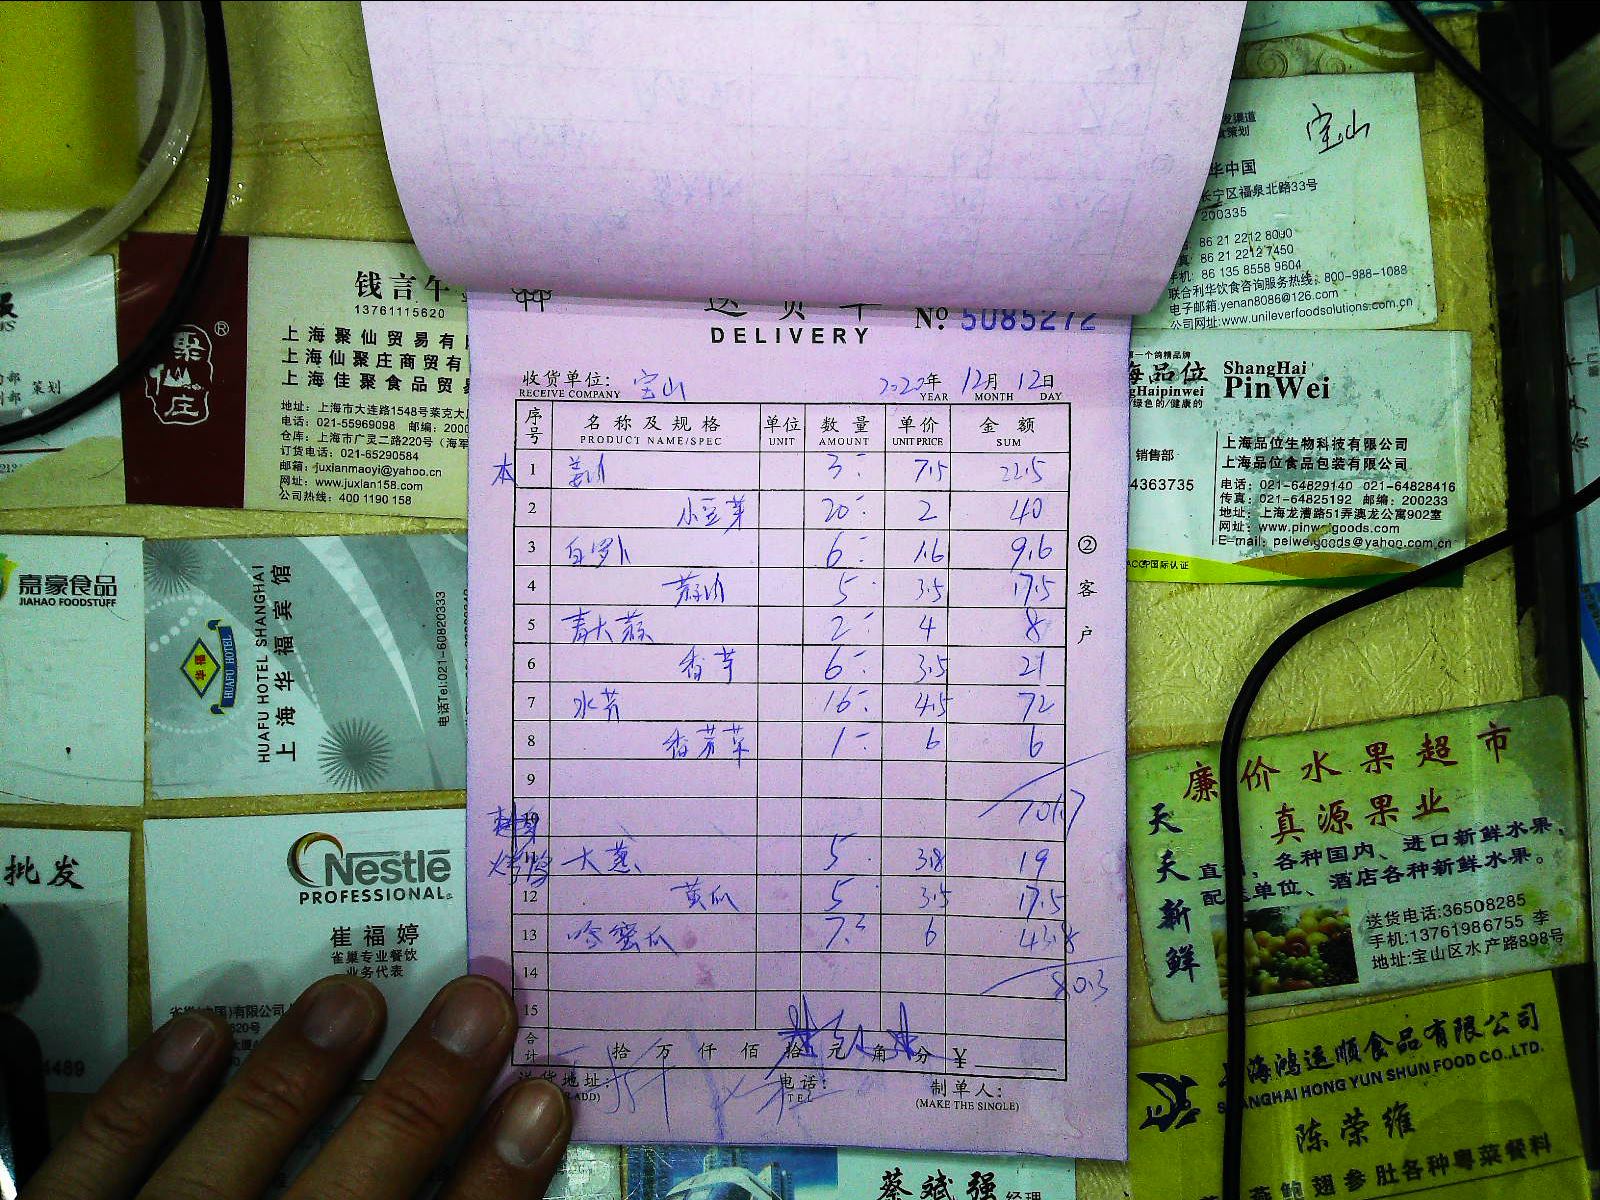 宝山
华中国
长宁区福泉北路33号
200335
86 21 2212 8000
86 21 2212 7450
手机: 86 135 8558 9604
联合利华饮食咨询服务热线: 800-988-1088
电子邮箱:yenan8086@126.com
公司网址:www.unileverfoodsolutions.com.cn
钱言午
13761115620
上海聚仙贸易有
上海仙聚庄商贸有
上海佳聚食品贸易
地址: 上海市大连路1548号莱克大
电话: 021-55969098 邮编: 2000
仓库: 上海市广灵二路220号 (海军
订货电话: 021-65290584
邮箱: juxianmaoyi@yahoo.cn
网址: www.juxian158.com
公司热线: 400 1190 158
聚仙庄
®
策划
送货单
DELIVERY
No 5085272
收货单位: 宝山 2020年 12月 12日
RECEIVE COMPANY YEAR MONTH DAY
序号 名称及规格 单位 数量 单价 金额
PRODUCT NAME/SPEC UNIT AMOUNT UNIT PRICE SUM
本 1 3 7.5 22.5
2 小豆芽 20 2 40
3 白罗卜 6 1.6 9.6
4 5 3.5 17.5
5 青大蒜 2 4 8
6 香芋 6 3.5 21
7 水芹 16 4.5 72
8 香芳草 1 6 6
9
10
11 5 3.8 19
12 黄瓜 5 3.5 17.5
13 哈蜜瓜 7.3 6 43.8
14 80.3
15
合计 拾 万 仟 佰 拾 元 角 分 ¥
送货地址: 电话: 制单人:
ADD) TEL (MAKE THE SINGLE)
②客户
海品位
ShangHai
PinWei
gHaipinwei
绿色的/健康的
上海品位生物科技有限公司
上海品位食品包装有限公司
销售部
4363735
电话: 021-64829140 021-64828416
传真: 021-64825192 邮编: 200233
地址: 上海龙漕路51弄澳龙公寓902室
网址: www.pinweigoods.com
E-mail: peiweigoods@yahoo.com.cn
国际认证
嘉豪食品
JIAHAO FOODSTUFF
华福
HUAFU HOTEL
HUAFU HOTEL SHANGHAI
上海华福宾馆
电话Tel:021-60820333
廉价水果超市
真源果业
天天新鲜
直销, 各种国内、进口新鲜水果,
配送单位、酒店各种新鲜水果。
送货电话:36508285
手机:13761986755 李
地址:宝山区水产路898号
批发
4489
Nestlé
PROFESSIONAL
崔福婷
雀巢专业餐饮
业务代表
雀巢(中国)有限公司
620号
上海鸿运顺食品有限公司
SHANGHAI HONG YUN SHUN FOOD CO.,LTD.
陈荣维
燕鲍翅参肚各种粤菜餐料
蔡斌强 经理